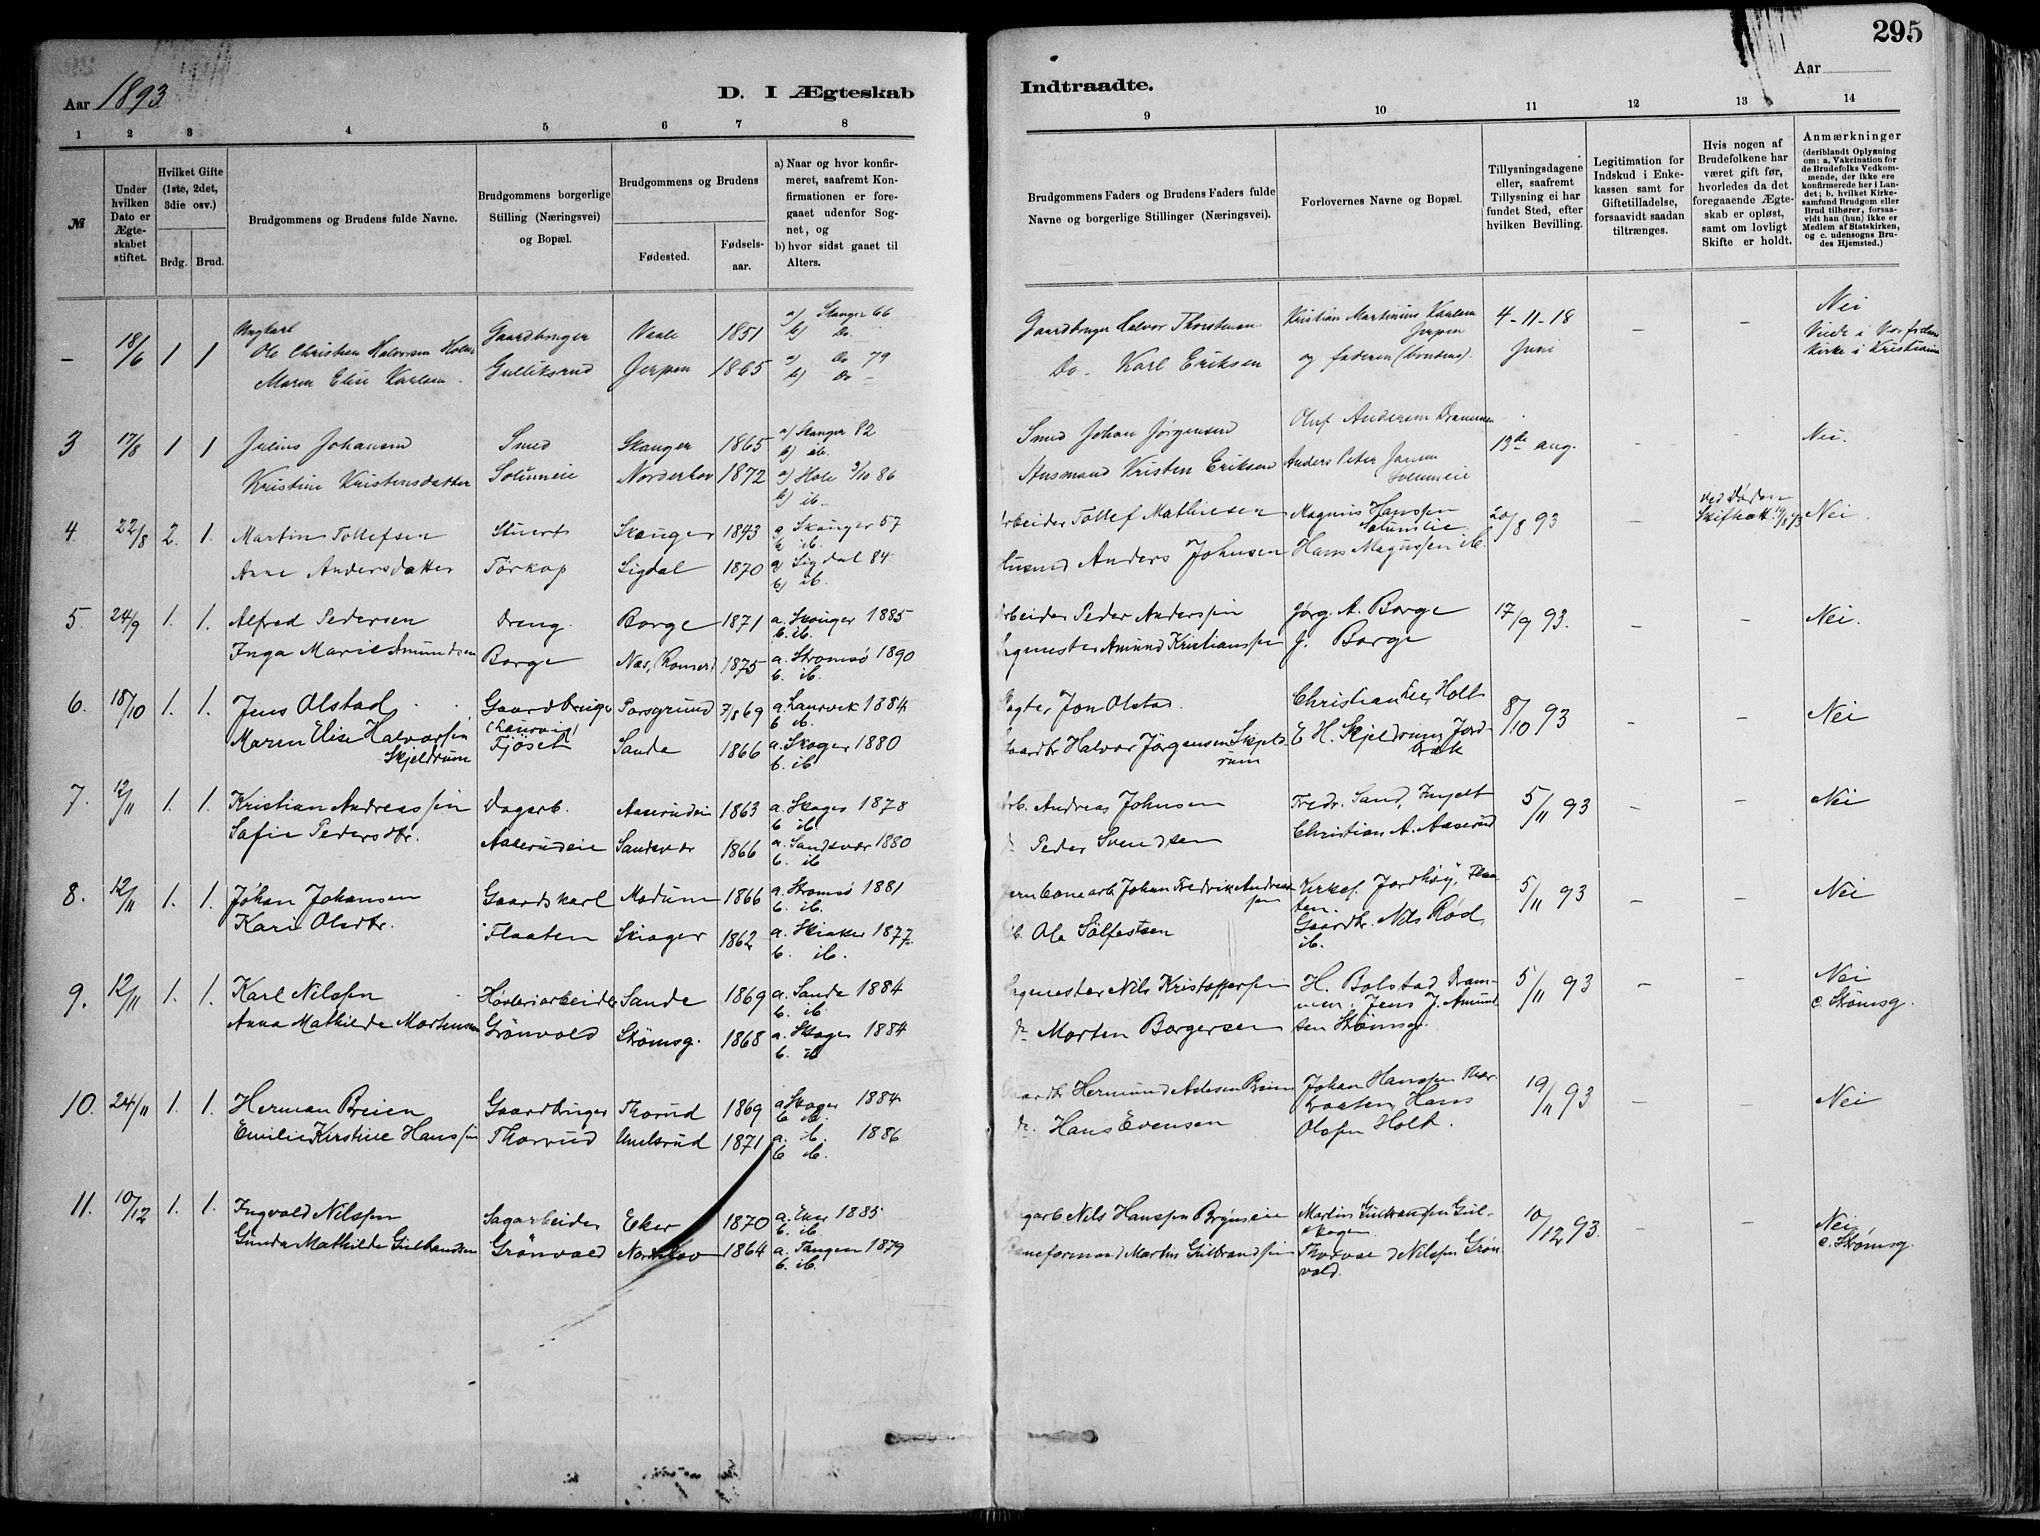 295
Aar 1893
D. I Ægteskab
Indtraadte.
Aar
1 2 3 4 5 6 7 8 9 10 11 12 13 14
№
Under hvilken Dato er Ægteskabet stiftet.
Hvilket Gifte (1ste, 2det, 3die osv.)
Brdg. Brud.
Brudgommens og Brudens fulde Navne.
Brudgommens borgerlige Stilling (Næringsvei) og Bopæl.
Brudgommens og Brudens
Fødested.
Fødselsaar.
a) Naar og hvor konfirmeret, saafremt Konfirmationen er foregaaet udenfor Sognet, og
b) hvor sidst gaaet til Alters.
Brudgommens Faders og Brudens Faders fulde Navne og borgerlige Stillinger (Næringsvei).
Forlovernes Navne og Bopæl.
Tillysningsdagene eller, saafremt Tillysning ei har fundet Sted, efter hvilken Bevilling.
Legitimation for Indskud i Enkekassen samt for Giftetilladelse, forsaavidt saadan tiltrænges.
Hvis nogen af Brudefolkene har været gift før, hvorledes da det foregaaende Ægteskab er opløst, samt om lovligt Skifte er holdt.
Anmærkninger (deriblandt Oplysning om: a. Vakcination for de Brudefolks Vedkommende, der ikke ere konfirmerede her i Landet; b. hvilket Kirkesamfund Brudgom eller Brud tilhører, forsaavidt han (hun) ikke er Medlem af Statskirken, og c. udensogns Brudes Hjemsted.)
– 18/6 1 1 Ungkarl Ole Christian Halvorsen Holm Gaardbruger Vaale 1851 a) Skanger 66 b) Do Gaardbruger Halvor Thorstensen Kristian Martinius Karlsen Jerpen 4-11-18 – – Nei
Maren Elise Karlsen Gulliksrud Jerpen 1865 a) Do 79 b) Do Do Karl Eriksen og faderen (brudens). Juni Viede i Vor frelsers kirke i Kristiania
3 17/8 1 1 Julius Johansen Smed Skanger 1865 a) Skanger 82 b) ib. Smed Johan Jørgensen Oluf Andersen Drammen 13de aug. – – Nei.
Kristine Kristensdatter Solumeie Norderhov 1872 a) Hole 3/10 86 b) ib. Husmand Kristen Eriksen Anders Peter Jansen Solumeie
4. 22/8 2. 1. Martin Tollefsen Stuert Skouger 1843 a) Skouger 57 b. ib. Arbeider Tollef Mathisen Magnus Hanssen Solumlie 20/8 93 – ved Døden Skifteatt. 19/8 93 Nei
Anne Andersdatter Törkop Sigdal 1870 a) Sigdal 84. b) ib. Husmd Anders Johnsen Hans Magnussen ib.
5 24/9 1. 1. Alfred Pedersen Dreng. Borge 1871 a. Skouger 1885 b. ib. Arbeider Peder Anderssen Jørg. A. Borge 17/9 93. – – Nei.
Inga Marie Amundsen Borge Næs, (Romer.) 1875 a. Stromsø 1890 b. ib. Sagmester Amund Kristianssen J. Borge
6. 18/10 1. 1. Jens Olstad Gaardbruger (Laurvig) Porsgrund 7/8 69 a. Laurvik 1884 b. ib. Pagter Jon Olstad. Christian Lee, Holt 8/10 93 – – Nei
Maren Elise Halvorsen Skjeldrum Fjöset Sande 1866 a. Skoger 1880 b. ib Gaardbr Halvor Jørgensen Skjeldrum E H. Skjeldrum, Jordbræk
7. 12/11 1. 1. Kristian Andreassen Dagarb. Aaserudeie 1863 a. Skoger 1878 b. ib. Arb. Andreas Johnsen Fredr. Sand, Ingelt 5/11 93 – – Nei
Safie Pedersdtr. Aaserudeie Sandsvær 1866 a. Sandsvær 1880 b. ib Peder Svendsen Christian A. Aaserud
8. 12/11 1. 1. Johan Johansen Gaardskarl Modum 1866 a. Stromsö 1881 b. ib. Jernbanearb. Johan Fredrik Andreassen Kirkes. Jordhöy, Flaaten. 5/11 93 – – Nei
Kari Olsdtr. Flaaten Skoger 1862 a. Skoger 1877. b. ib. Ole Sølfestsen Gaardbr. Nils Rød, ib.
9. 12/11 1. 1. Karl Nilssen Høvleriarbeider Sande 1869 a. Sande 1884 b. ib. Sagmester Nils Kristofferssen H. Bolstad Drammen. 5/11 93 – – Nei
Anna Mathilde Mortensen Grönvold Strømsg. 1868 a. Skoger 1884 b. ib do Morten Borgersen Jens J. Amundsen Strömsg. c. Strömsg.
10. 24/11 1. 1. Herman Breien Gaardbruger Thorud 1869 a Skoger 1884 b. ib. Gaardbr Hermund Andersen Breien Johan Hanssen 19/11 93 – – Nei
Emilie Kirstine Hanssen Thorrud Unelsrud 1871 a. ib. 1886 b. ib. do. Hans Evensen Hans Olssen Holt.
11. 10/12 1. 1. Ingvald Nilssen Sagarbeider Eker 1870 a. Eker 1885 b. ib Sagarb. Nils Hanssen Brynseie Martin Gulbrandsen Gulskogen 10/12 93. – – Nei
Gunda Mathilde Gulbrandsen Grönvold Norderhov 1864 a. Tangen 1879 b. ib. Baneformand Martin Gulbrandsen Thorvald Nilssen Grönvold. c. Strømsg.